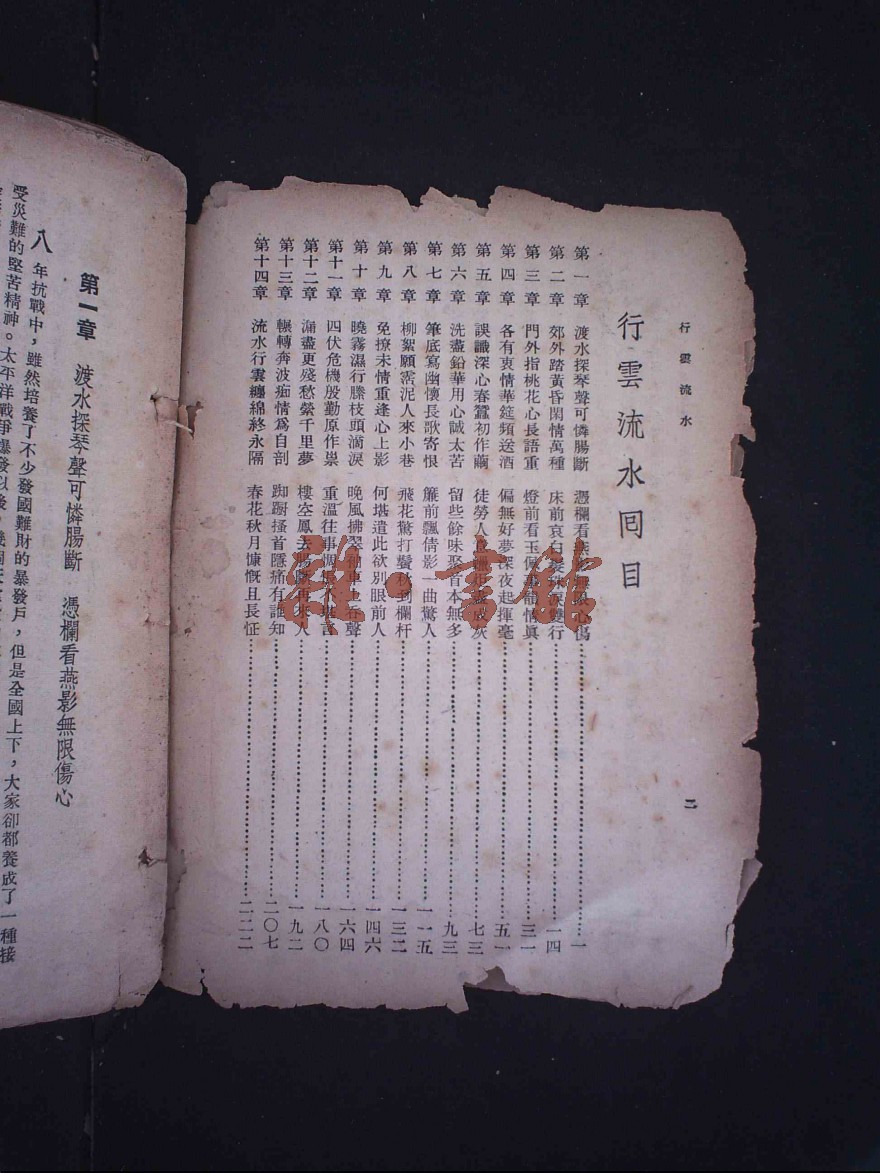 行雲流水
二
行雲流水囘目
第一章 渡水探琴聲可憐腸斷 憑欄看燕影無限心傷 一
第二章 郊外踏黃昏閑情萬種 床前哀白髮 淚雙行 一四
第三章 門外指桃花心長語重 燈前看玉 情眞 三一
第四章 各有衷情華筵頻送酒 偏無好夢深夜起揮毫 五一
第五章 誤識深心春蠶初作繭 徒勞人 成灰 七三
第六章 洗盡鉛華用心誠太苦 留些餘味聚首本無多 九三
第七章 筆底寫幽懷長歌寄恨 簾前飄倩影一曲驚人 一一五
第八章 柳絮願霑泥人來小巷 飛花驚打鬢秋到欄杆 一三二
第九章 免撩未情重逢心上影 何堪遣此欲別眼前人 一四六
第十章 曉霧濕行縢枝頭滴淚 晚風拂翠袖車上吞聲 一六四
第十一章 四伏危機殷勤原作祟 重溫往事惆悵 言 一八〇
第十二章 漏盡更殘愁縈千里夢 樓空鳳去腸斷再來人 一九二
第十三章 輾轉奔波痴情爲自剖 踟蹰搔首隱痛有誰知 二〇七
第十四章 流水行雲纏綿終永隔 春花秋月慷慨且長征 二二二
第一章 渡水探琴聲可憐腸斷 憑欄看燕影無限傷心
八年抗戰中，雖然培養了不少發國難財的暴發戶，但是全國上下，大家卻都養成了一種接
受災難的堅苦精神。太平洋戰爭爆發以後，
雅·書館